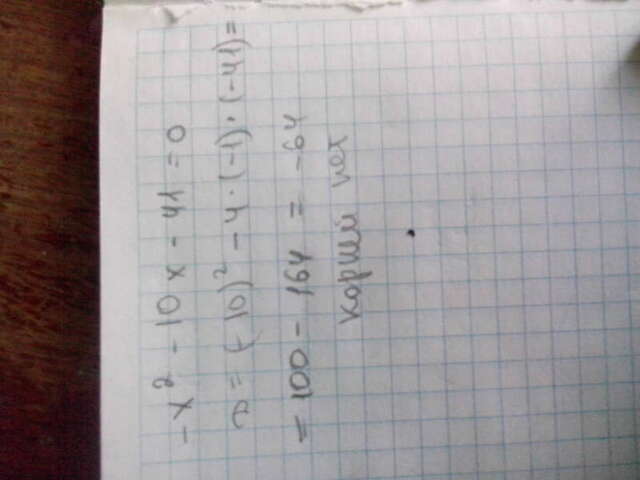 -x² - 10x - 41 = 0
D = (-10)² - 4·(-1)·(-41) =
= 100 - 164 = -64
Корней нет